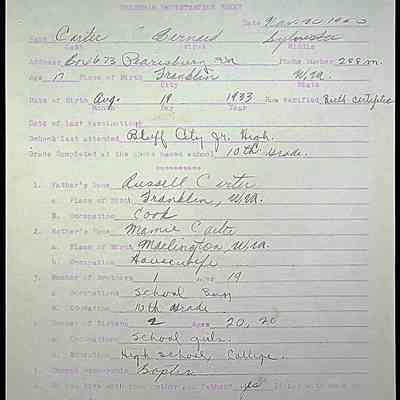 Date Nov. 20 1950
Name Carter Bernard Sylvester
Last First Middle
Address Box 673 Pearisburg Va Phone Number 288 m.
Age 17 Place of Birth Franklin W. Va.
City State
Date of Birth Aug. 19 1933 How verified Birth certificate
Mo Day Year
Date of last examination
School last attended Bluff City Jr. High.
Grade Completed at the above named school 10th Grade.
1. Father's Name Russell Carter
a. Place of Birth Franklin, W. Va.
B. Occupation Cook
2. Mother's Name Mamie Carter
a. Place of Birth Marlington, W. Va.
b. Occupation Housewife
3. Number of Brothers 1 Ages 19
a. Occupations School Boy
b. Education 10th Grade
4. Number of Sisters 2 Ages 20, 20
a. Occupations School girls.
b. Education High School, College.
5. Church Membership Baptist
6. Do you live with your mother and father? yes If not with whom do